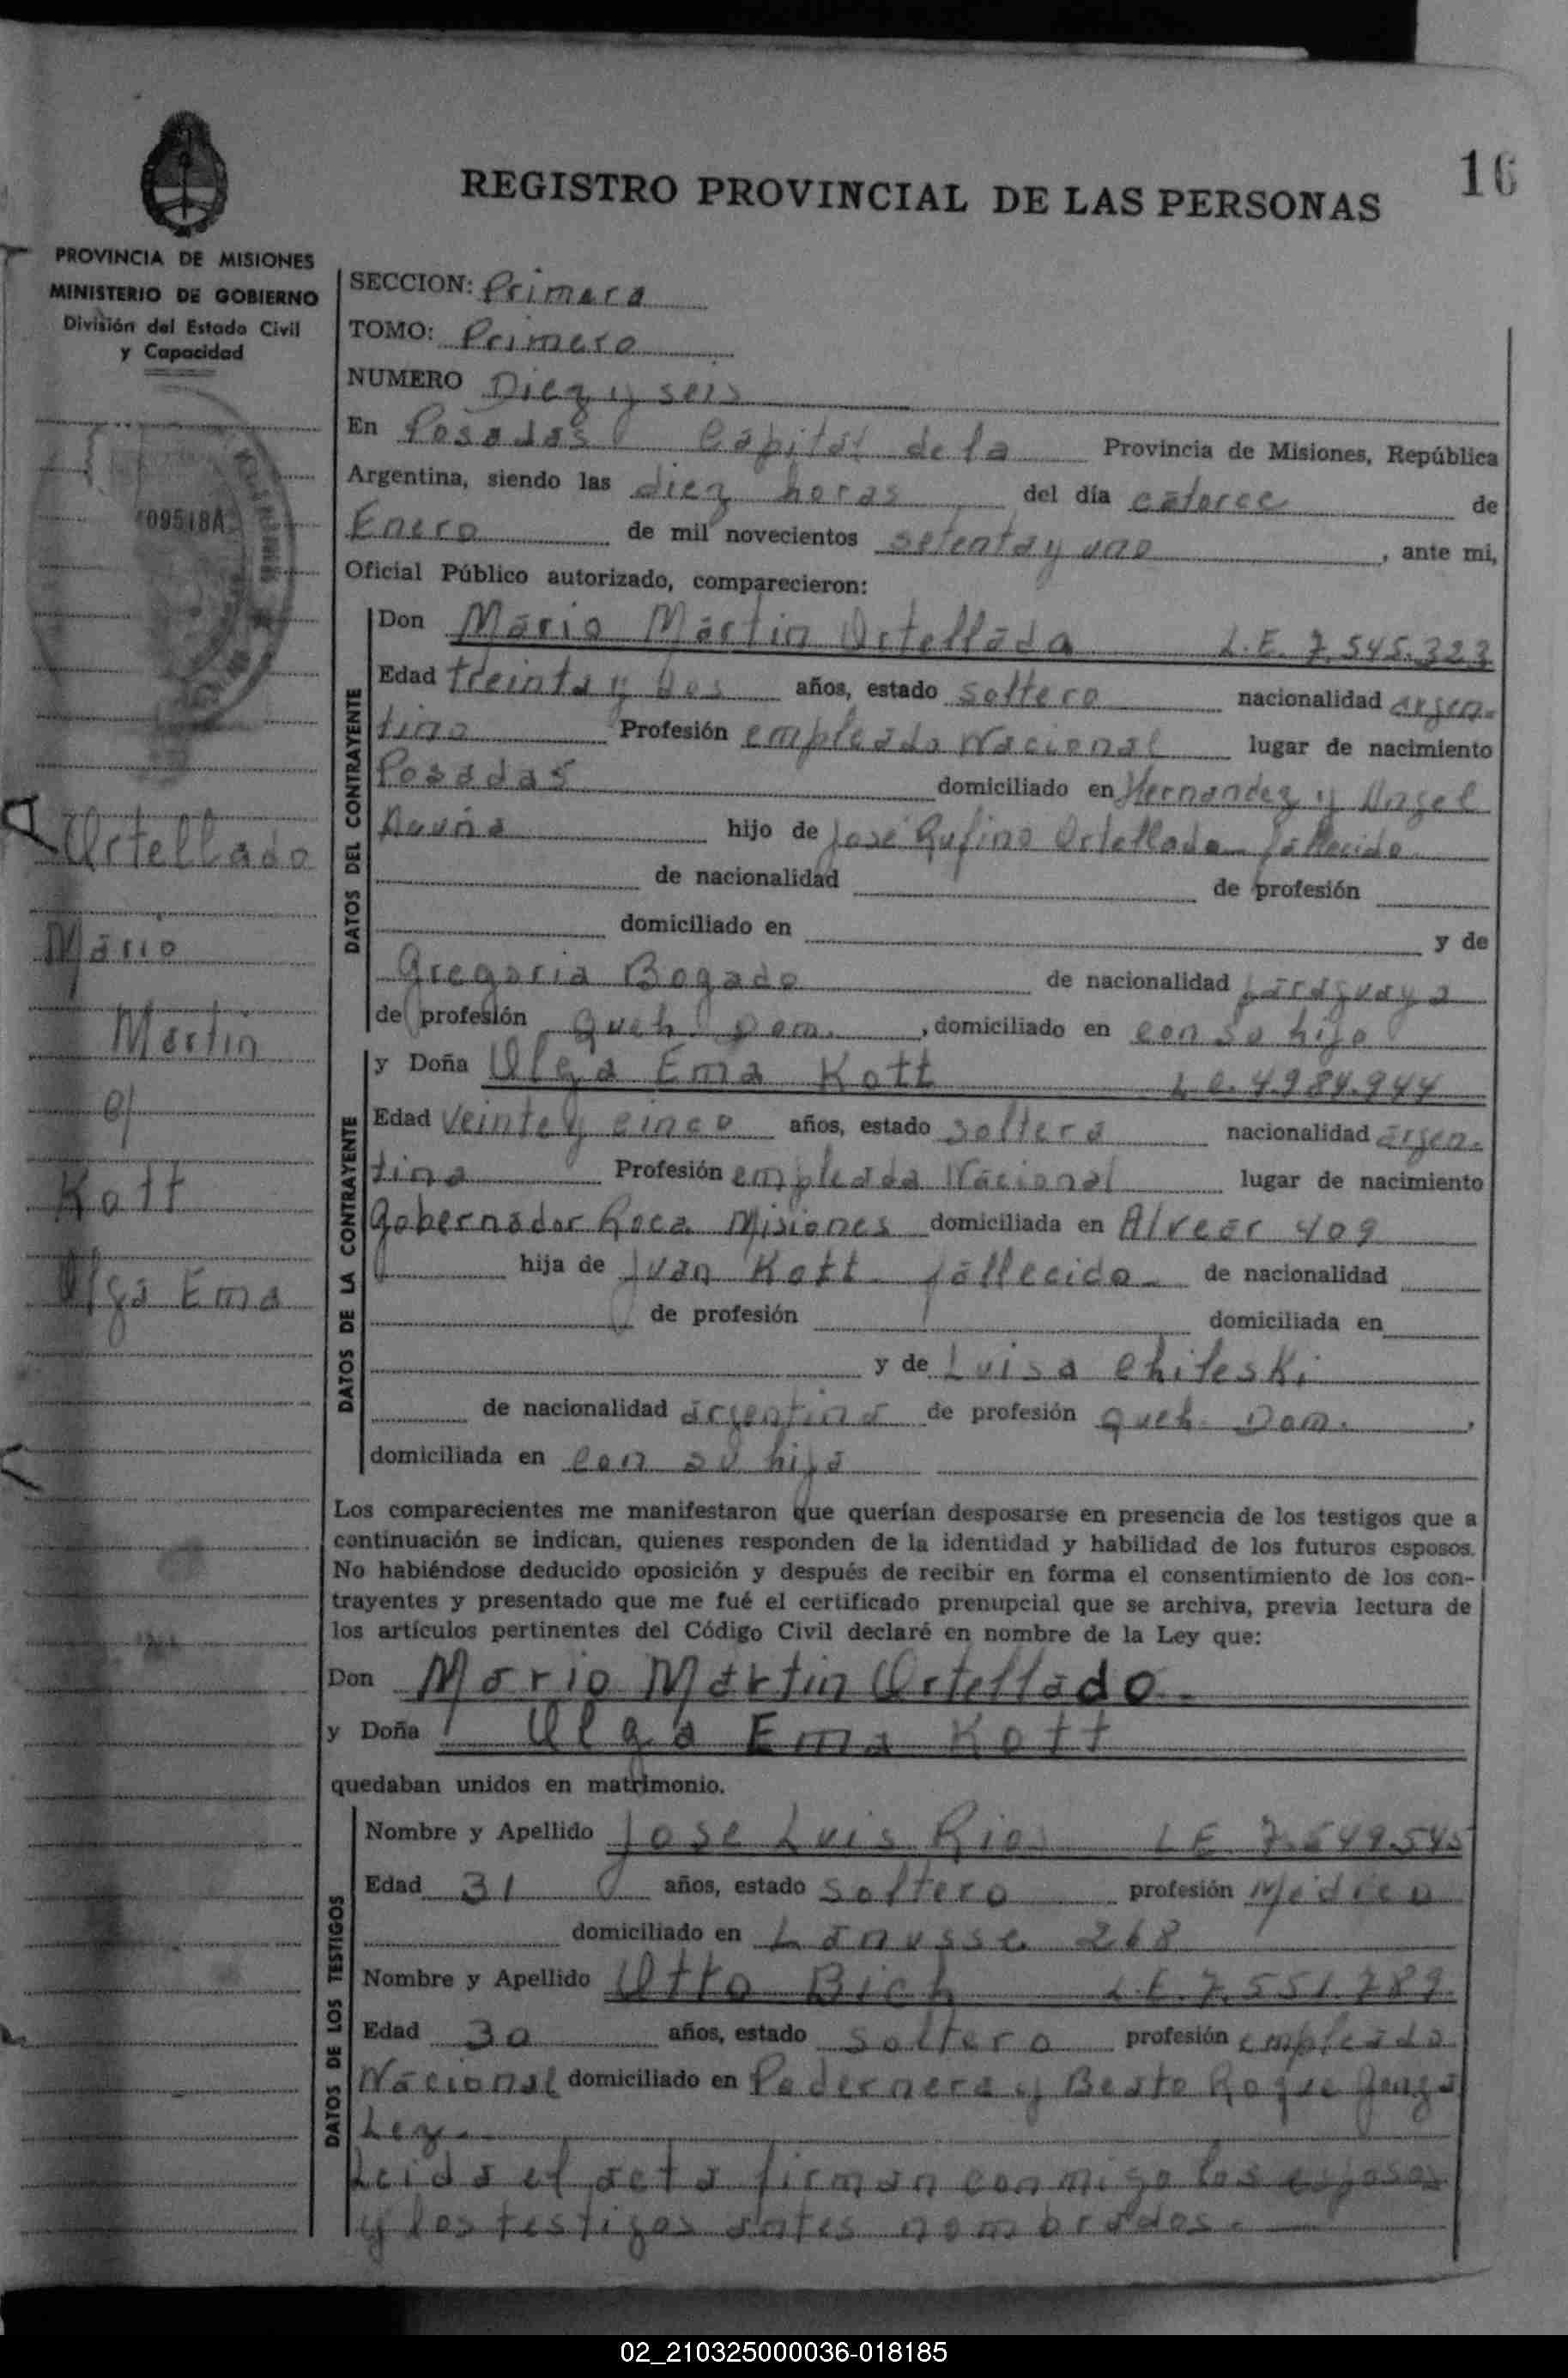 16
REGISTRO PROVINCIAL DE LAS PERSONAS
PROVINCIA DE MISIONES
MINISTERIO DE GOBIERNO
División del Estado Civil
y Capacidad
109518A
Ortellado
Mario
Martin
c/
Kott
Olga Ema
SECCION: Primera
TOMO: Primero
NUMERO Diez y seis
En Posadas Capital de la Provincia de Misiones, República
Argentina, siendo las diez horas del día catorce de
Enero de mil novecientos setenta y uno, ante mi,
Oficial Público autorizado, comparecieron:
DATOS DEL CONTRAYENTE
Don Mario Martin Ortellado L.E. 7.545.323
Edad treinta y dos años, estado soltero nacionalidad argen-
tino Profesión empleado Nacional lugar de nacimiento
Posadas domiciliado en Hernandez y Angel
Acuña hijo de José Rufino Ortellado fallecido
de nacionalidad de profesión
domiciliado en y de
Gregoria Bogado de nacionalidad paraguaya
de profesión queh. Dom., domiciliado en con su hijo
DATOS DE LA CONTRAYENTE
y Doña Olga Ema Kott L.C. 4.984.944
Edad veinte y cinco años, estado soltera nacionalidad argen-
tina Profesión empleada Nacional lugar de nacimiento
Gobernador Roca Misiones domiciliada en Alvear 409
hija de Juan Kott fallecido de nacionalidad
de profesión domiciliada en
y de Luisa Chileski
de nacionalidad argentina de profesión queh. Dom.,
domiciliada en con su hija
Los comparecientes me manifestaron que querían desposarse en presencia de los testigos que a
continuación se indican, quienes responden de la identidad y habilidad de los futuros esposos.
No habiéndose deducido oposición y después de recibir en forma el consentimiento de los con-
trayentes y presentado que me fué el certificado prenupcial que se archiva, previa lectura de
los artículos pertinentes del Código Civil declaré en nombre de la Ley que:
Don Mario Martin Ortellado
y Doña Olga Ema Kott
quedaban unidos en matrimonio.
DATOS DE LOS TESTIGOS
Nombre y Apellido Jose Luis Rios L.E. 7.549.545
Edad 31 años, estado soltero profesión Médico
domiciliado en Lanusse 268
Nombre y Apellido Otto Bich L.E. 7.551.789
Edad 30 años, estado soltero profesión empleado
Nacional domiciliado en Pedernera y Beato Roque Gonza
Lez.
Leida el acta firman conmigo los esposos
y los testigos antes nombrados.
02_210325000036-018185